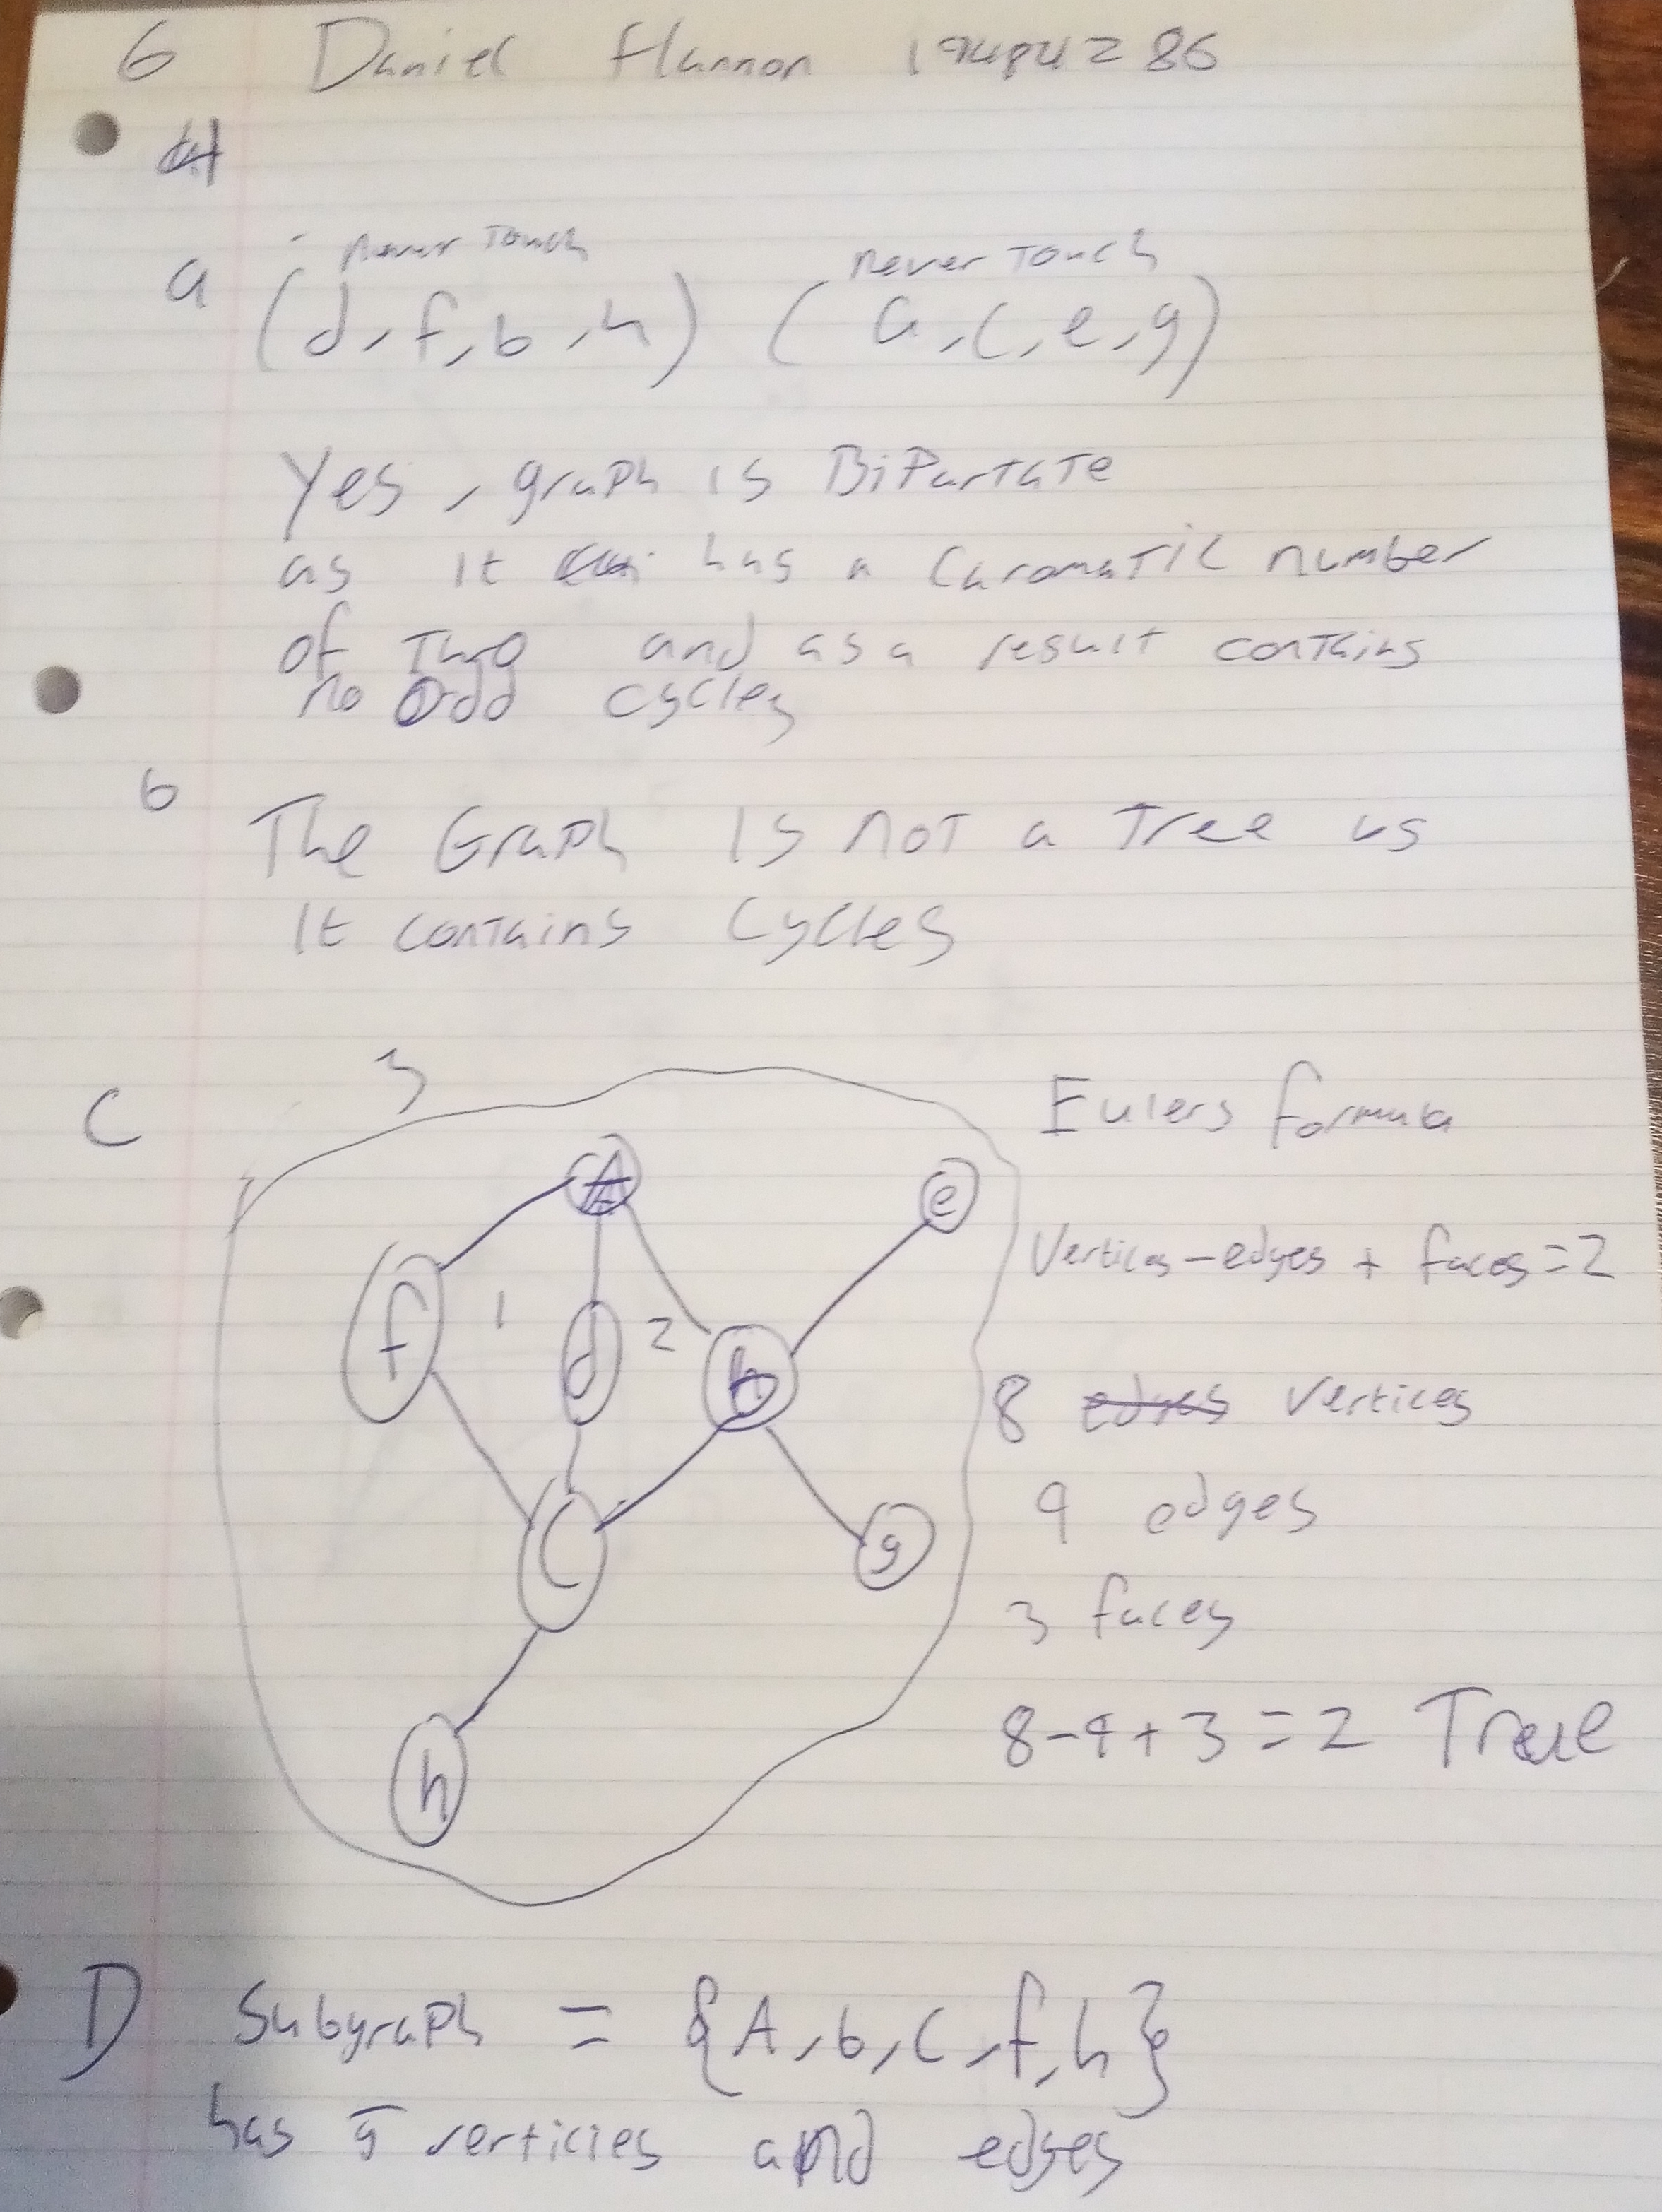 6 Daniel Hannon 19484286
a never Touch never Touch
(d, f, b, h) (a, c, e, g)
Yes, graph is BiPartate
as it has a Chromatic number
of Two and as a result contains
no Odd cycles
b
The Graph is not a Tree as
It contains Cycles
C 3 Eulers formula
A e
Vertices - edges + faces = 2
f 1 d 2 b
8 edges vertices
9 edges
C g
3 faces
8-9+3=2 True
h
D Subgraph = {A, b, c, f, h}
has 5 verticies and edges